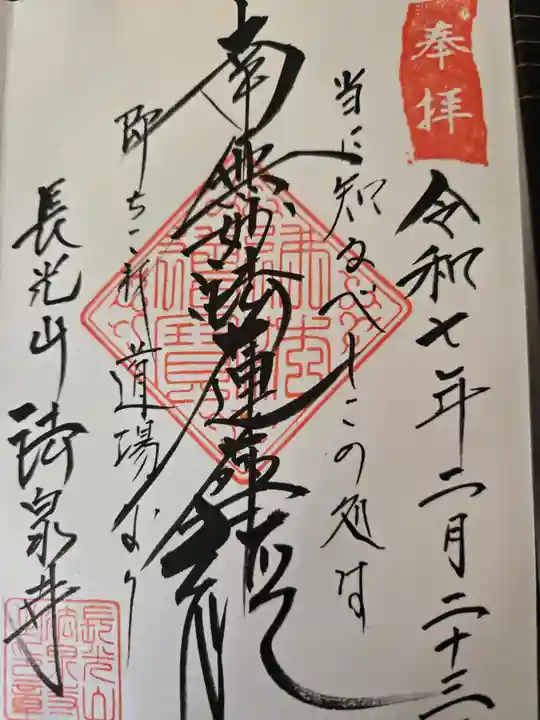 奉拝
令和七年二月二十三
当に知るべしこの処は
南無妙法蓮華経
即ちこれ道場なり
長光山 法泉寺